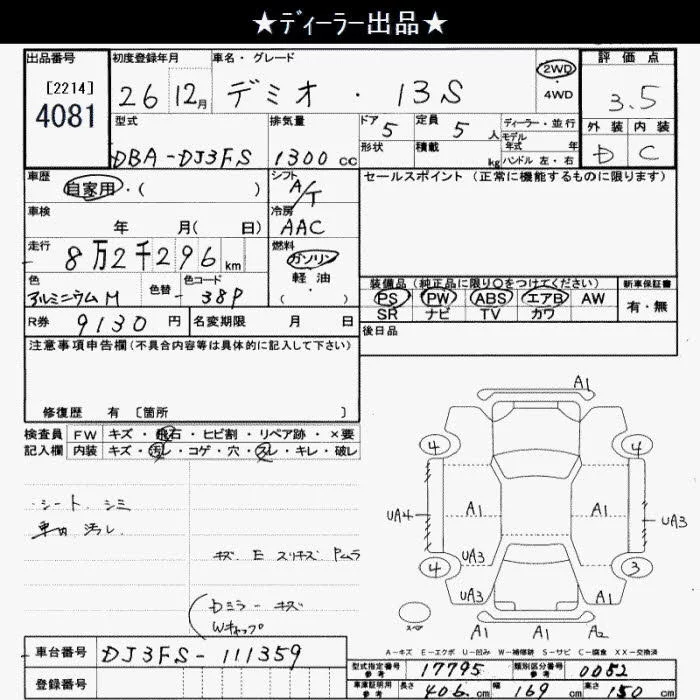 ★ディーラー出品★
出品番号 [2214] 4081
初度登録年月 26 12月
車名・グレード デミオ・13S
2WD・4WD
評価点 3.5
外装 D 内装 C
型式 DBA-DJ3FS
排気量 1300 cc
ドア 5 形状
定員 5 人 積載 kg
ディーラー・並行
モデル年式 年
ハンドル 左・右
車歴 自家用・( )
シフト A/T
セールスポイント (正常に機能するものに限ります)
車検 年 月( 日)
冷房 AAC
走行 8万2千296 km
燃料 ガソリン 軽油・( )
色 アルミニウムM 色替 - 色コード 38P
装備品 (純正品に限り○をつけてください)
PS PW ABS エアB AW
SR ナビ TV カワ
新車保証書 有・無
R券 9130 円 名変期限 月 日
後日品
注意事項申告欄 (不具合内容等は具体的に記入して下さい)
修復歴 有 [箇所 ]
検査員記入欄
FW キズ・飛石・ヒビ割・リペア跡・×要
内装 キズ・汚レ・コゲ・穴・スレ・キレ・破レ
・シート シミ
車内 汚レ
キズ E スリキズ Pムラ
Dミラー キズ
Wキャップ
A1
4 4
A1
UA4 A1 A1 UA3
UA3
4 3
UA3 A1
スペア A1 A1 A2
A-キズ E-エクボ U-凹み W-補修跡 S-サビ C-腐食 XX-交換済
車台番号 DJ3FS-111359
登録番号
型式指定番号 参考 17795 類別区分番号 参考 0052
車庫証明用 参考 長さ 406 cm 幅 169 cm 高さ 150 cm